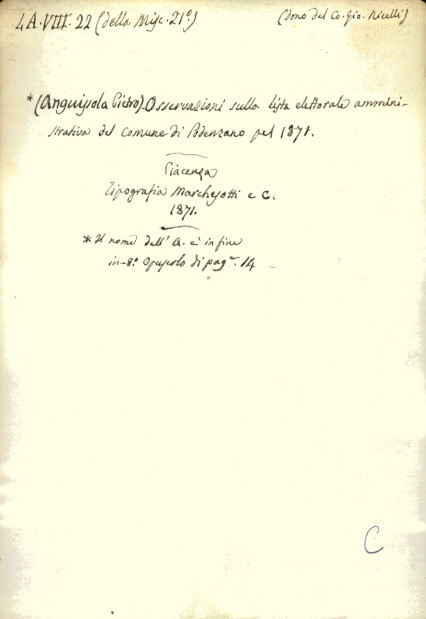 4A.VIII.22 (della Misc. 21º) (dono del Co. Gio. Nicelli)
*(Anguissola Pietro). Osservazioni sulla lista elettorale ammini-
strativa del Comune di Podenzano pel 1871.
Piacenza
Tipografia Marchesotti e C.
1871.
* Il nome dell'A. è in fine
in-8º. Opuscolo di pagᵉ. 14
C